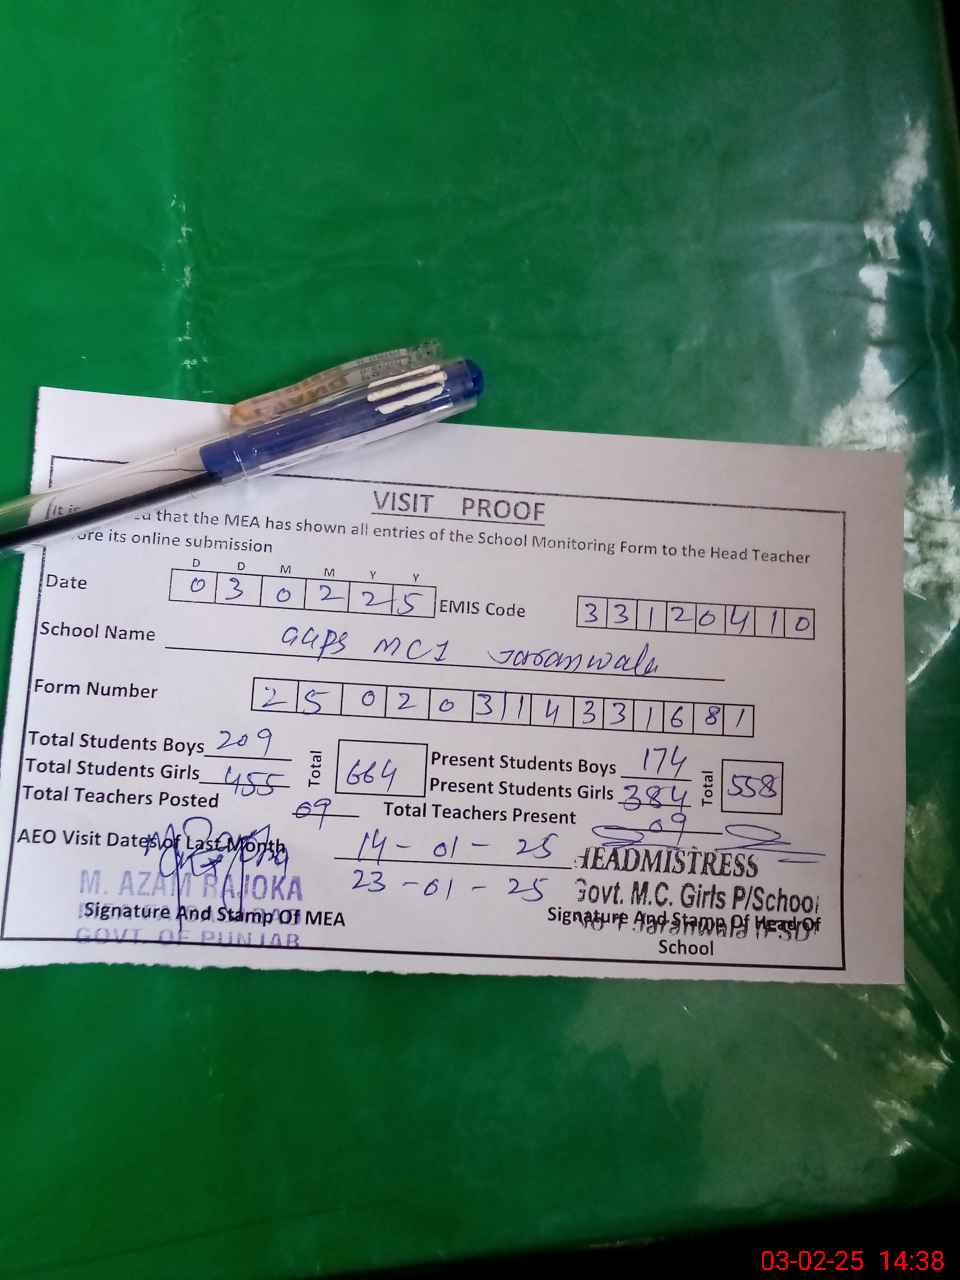 VISIT PROOF
(It is that the MEA has shown all entries of the School Monitoring Form to the Head Teacher
its online submission
D D M M Y Y
Date 0 3 0 2 2 5 EMIS Code 3 3 1 2 0 4 1 0
School Name GGPS MC1 Jaranwala
Form Number 2 5 0 2 0 3 1 4 3 3 1 6 8 1
Total Students Boys 209 Total 664 Present Students Boys 174 Total 558
Total Students Girls 455 Present Students Girls 384
Total Teachers Posted 09 Total Teachers Present 09
AEO Visit Dates of Last Month 14-01-25
23-01-25
M. AZAM RAJOKA
GOVT. OF PUNJAB
Signature And Stamp Of MEA
HEADMISTRESS
Govt. M.C. Girls P/School
Signature And Stamp Of Head Of
School
03-02-25 14:38